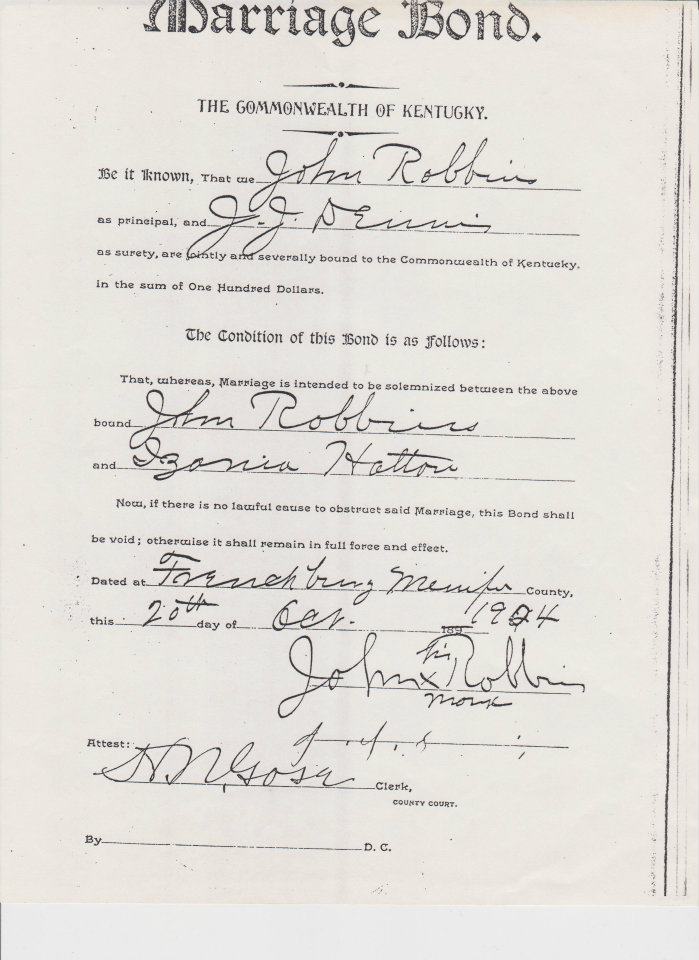 Marriage Bond.
THE COMMONWEALTH OF KENTUCKY.
Be it Known, That we John Robbins
as principal, and J. J. Dennis
as surety, are jointly and severally bound to the Commonwealth of Kentucky,
in the sum of One Hundred Dollars.
The Condition of this Bond is as Follows:
That, whereas, Marriage is intended to be solemnized between the above
bound John Robbins
and Izonia Hatton
Now, if there is no lawful cause to obstruct said Marriage, this Bond shall
be void; otherwise it shall remain in full force and effect.
Dated at Frenchburg Menifee County,
this 20th day of Oct. 189 1904
his
John x Robbins
mark
Attest:
Clerk,
COUNTY COURT.
By D. C.